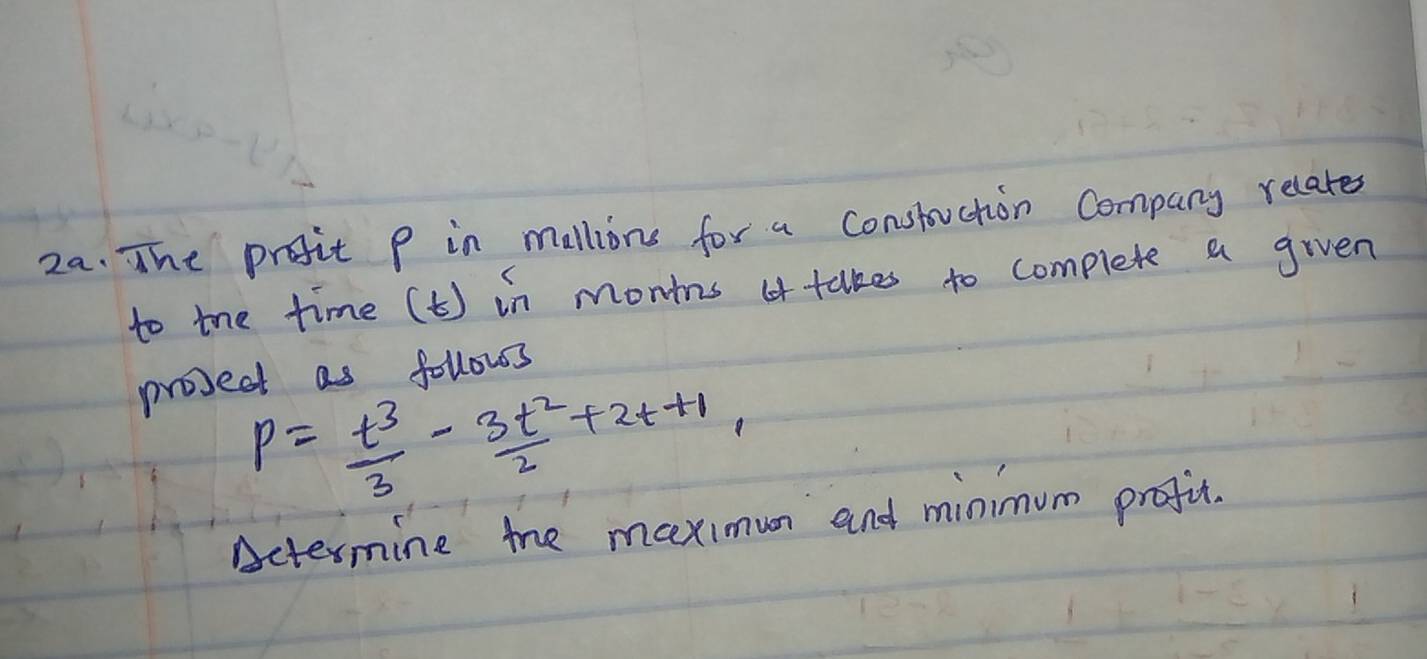 2a. The profit P in millions for a Construction Company relates
to the time (t) in months it takes to complete a given
project as follows
P = t³/3 - 3t²/2 + 2t + 1,
Determine the maximum and minimum profit.